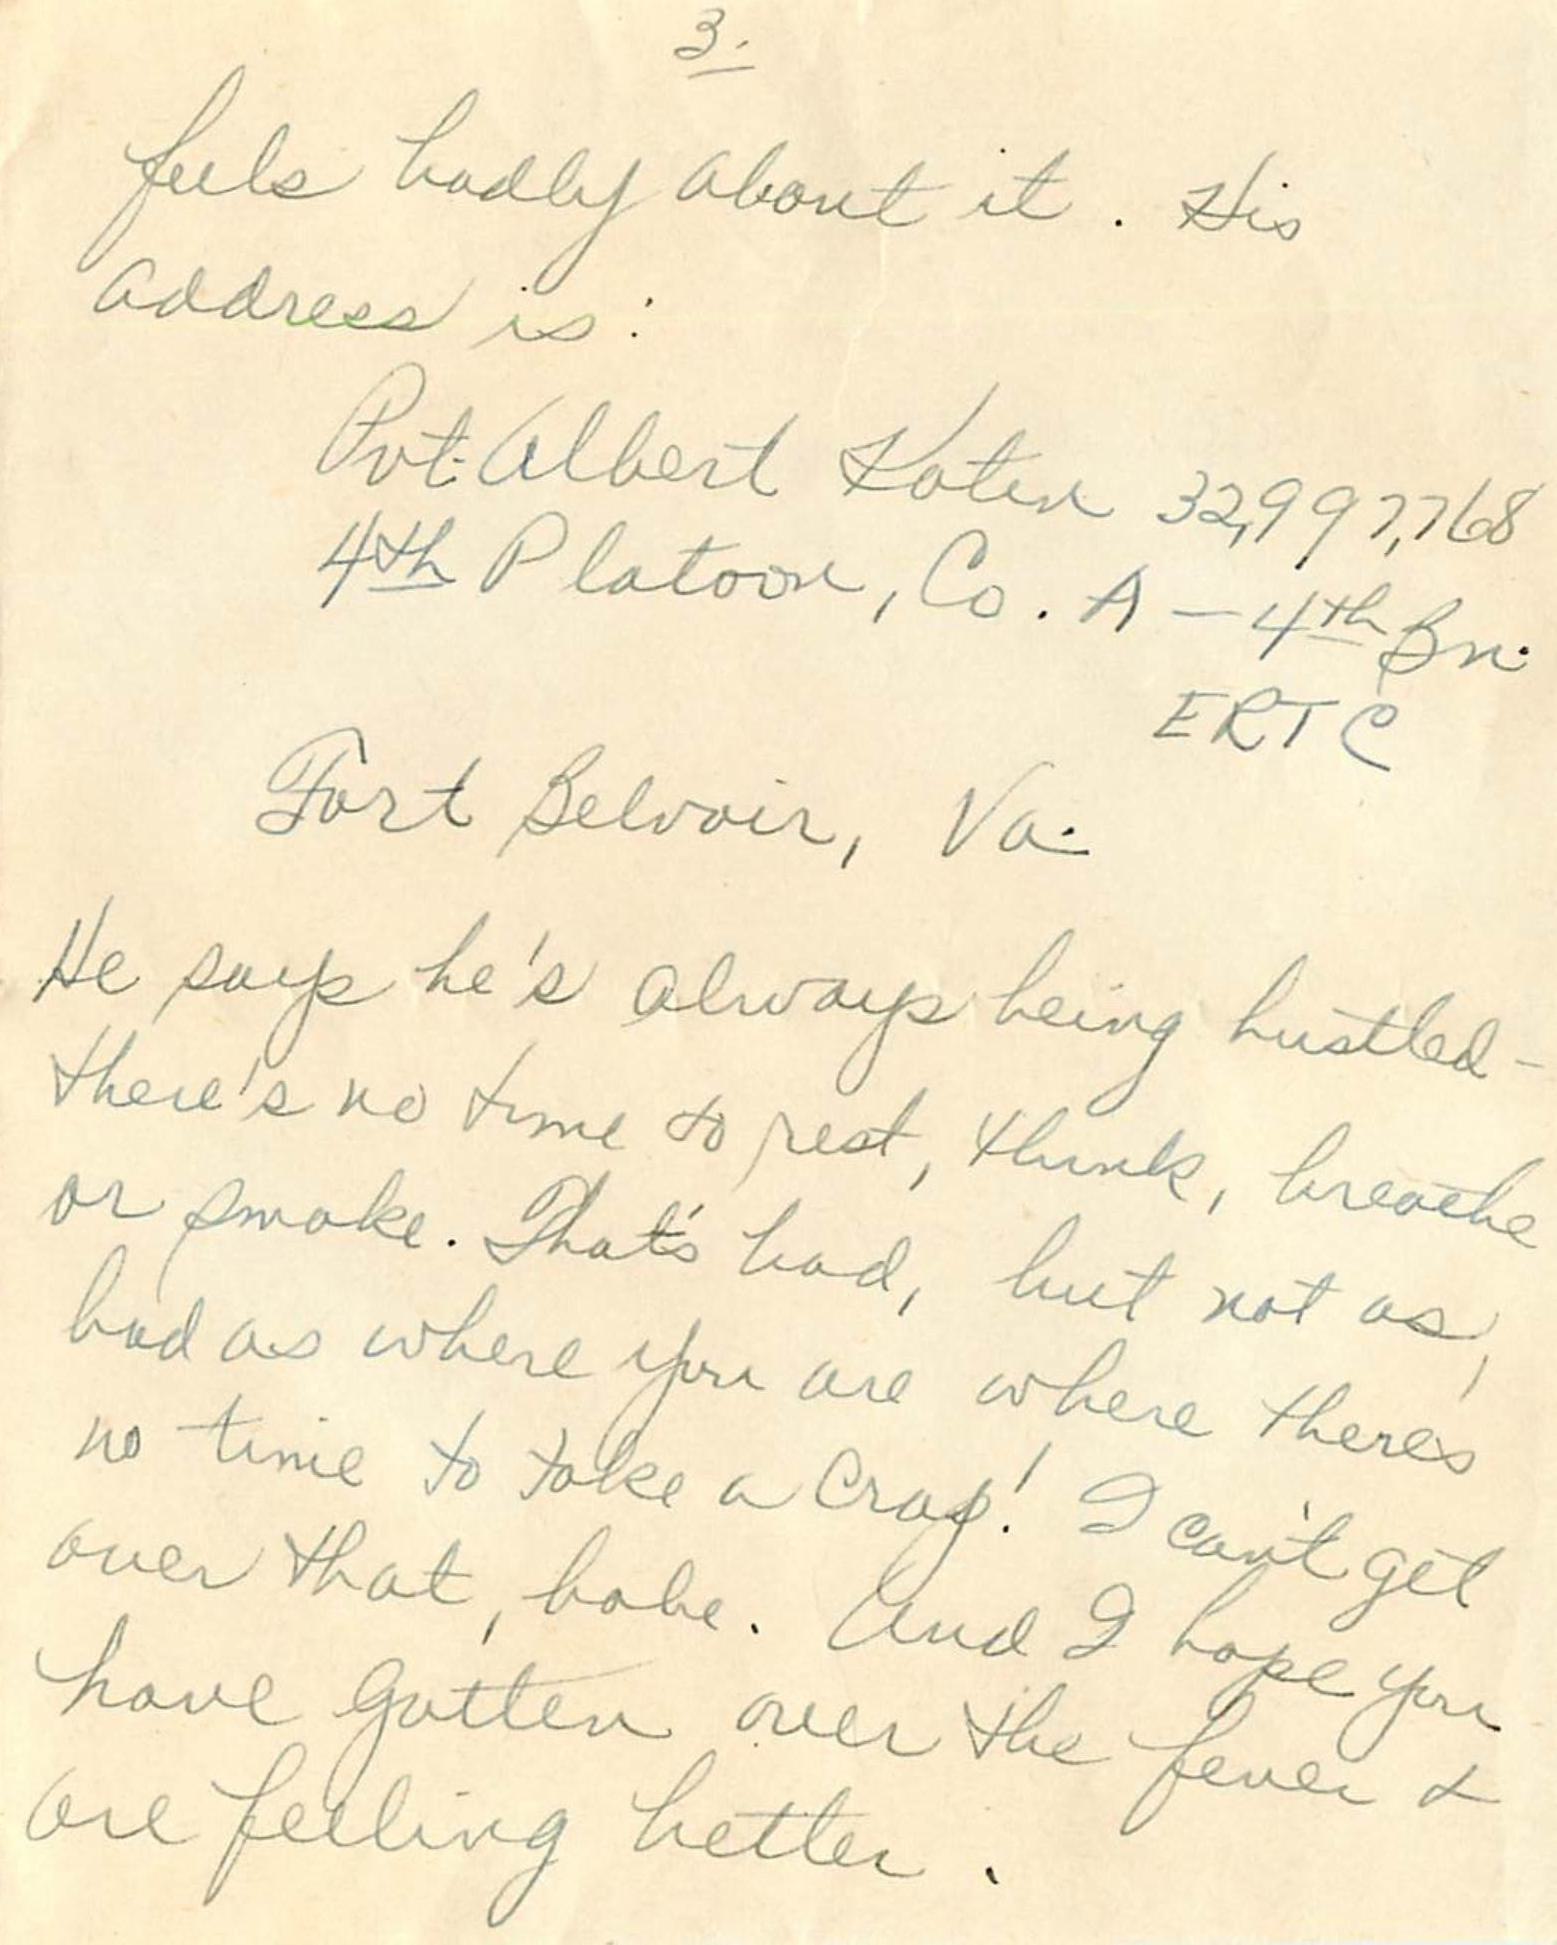 3.
feels badly about it. His
address is:
Pvt. Albert Katen 32,997,768
4th Platoon, Co. A – 4th Bn.
ERTC
Fort Belvoir, Va.
He says he's always being hustled –
there's no time to rest, think, breathe
or smoke. That's bad, but not as
bad as where you are where there's
no time to take a crap! I can't get
over that, babe. And I hope you
have gotten over the fever &
are feeling better.